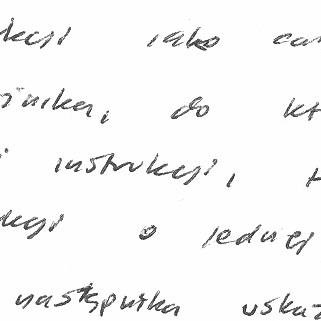 kcji jako ca
nika, do kt
i instrukcji, t
kcji o jednej
następnika wskaź